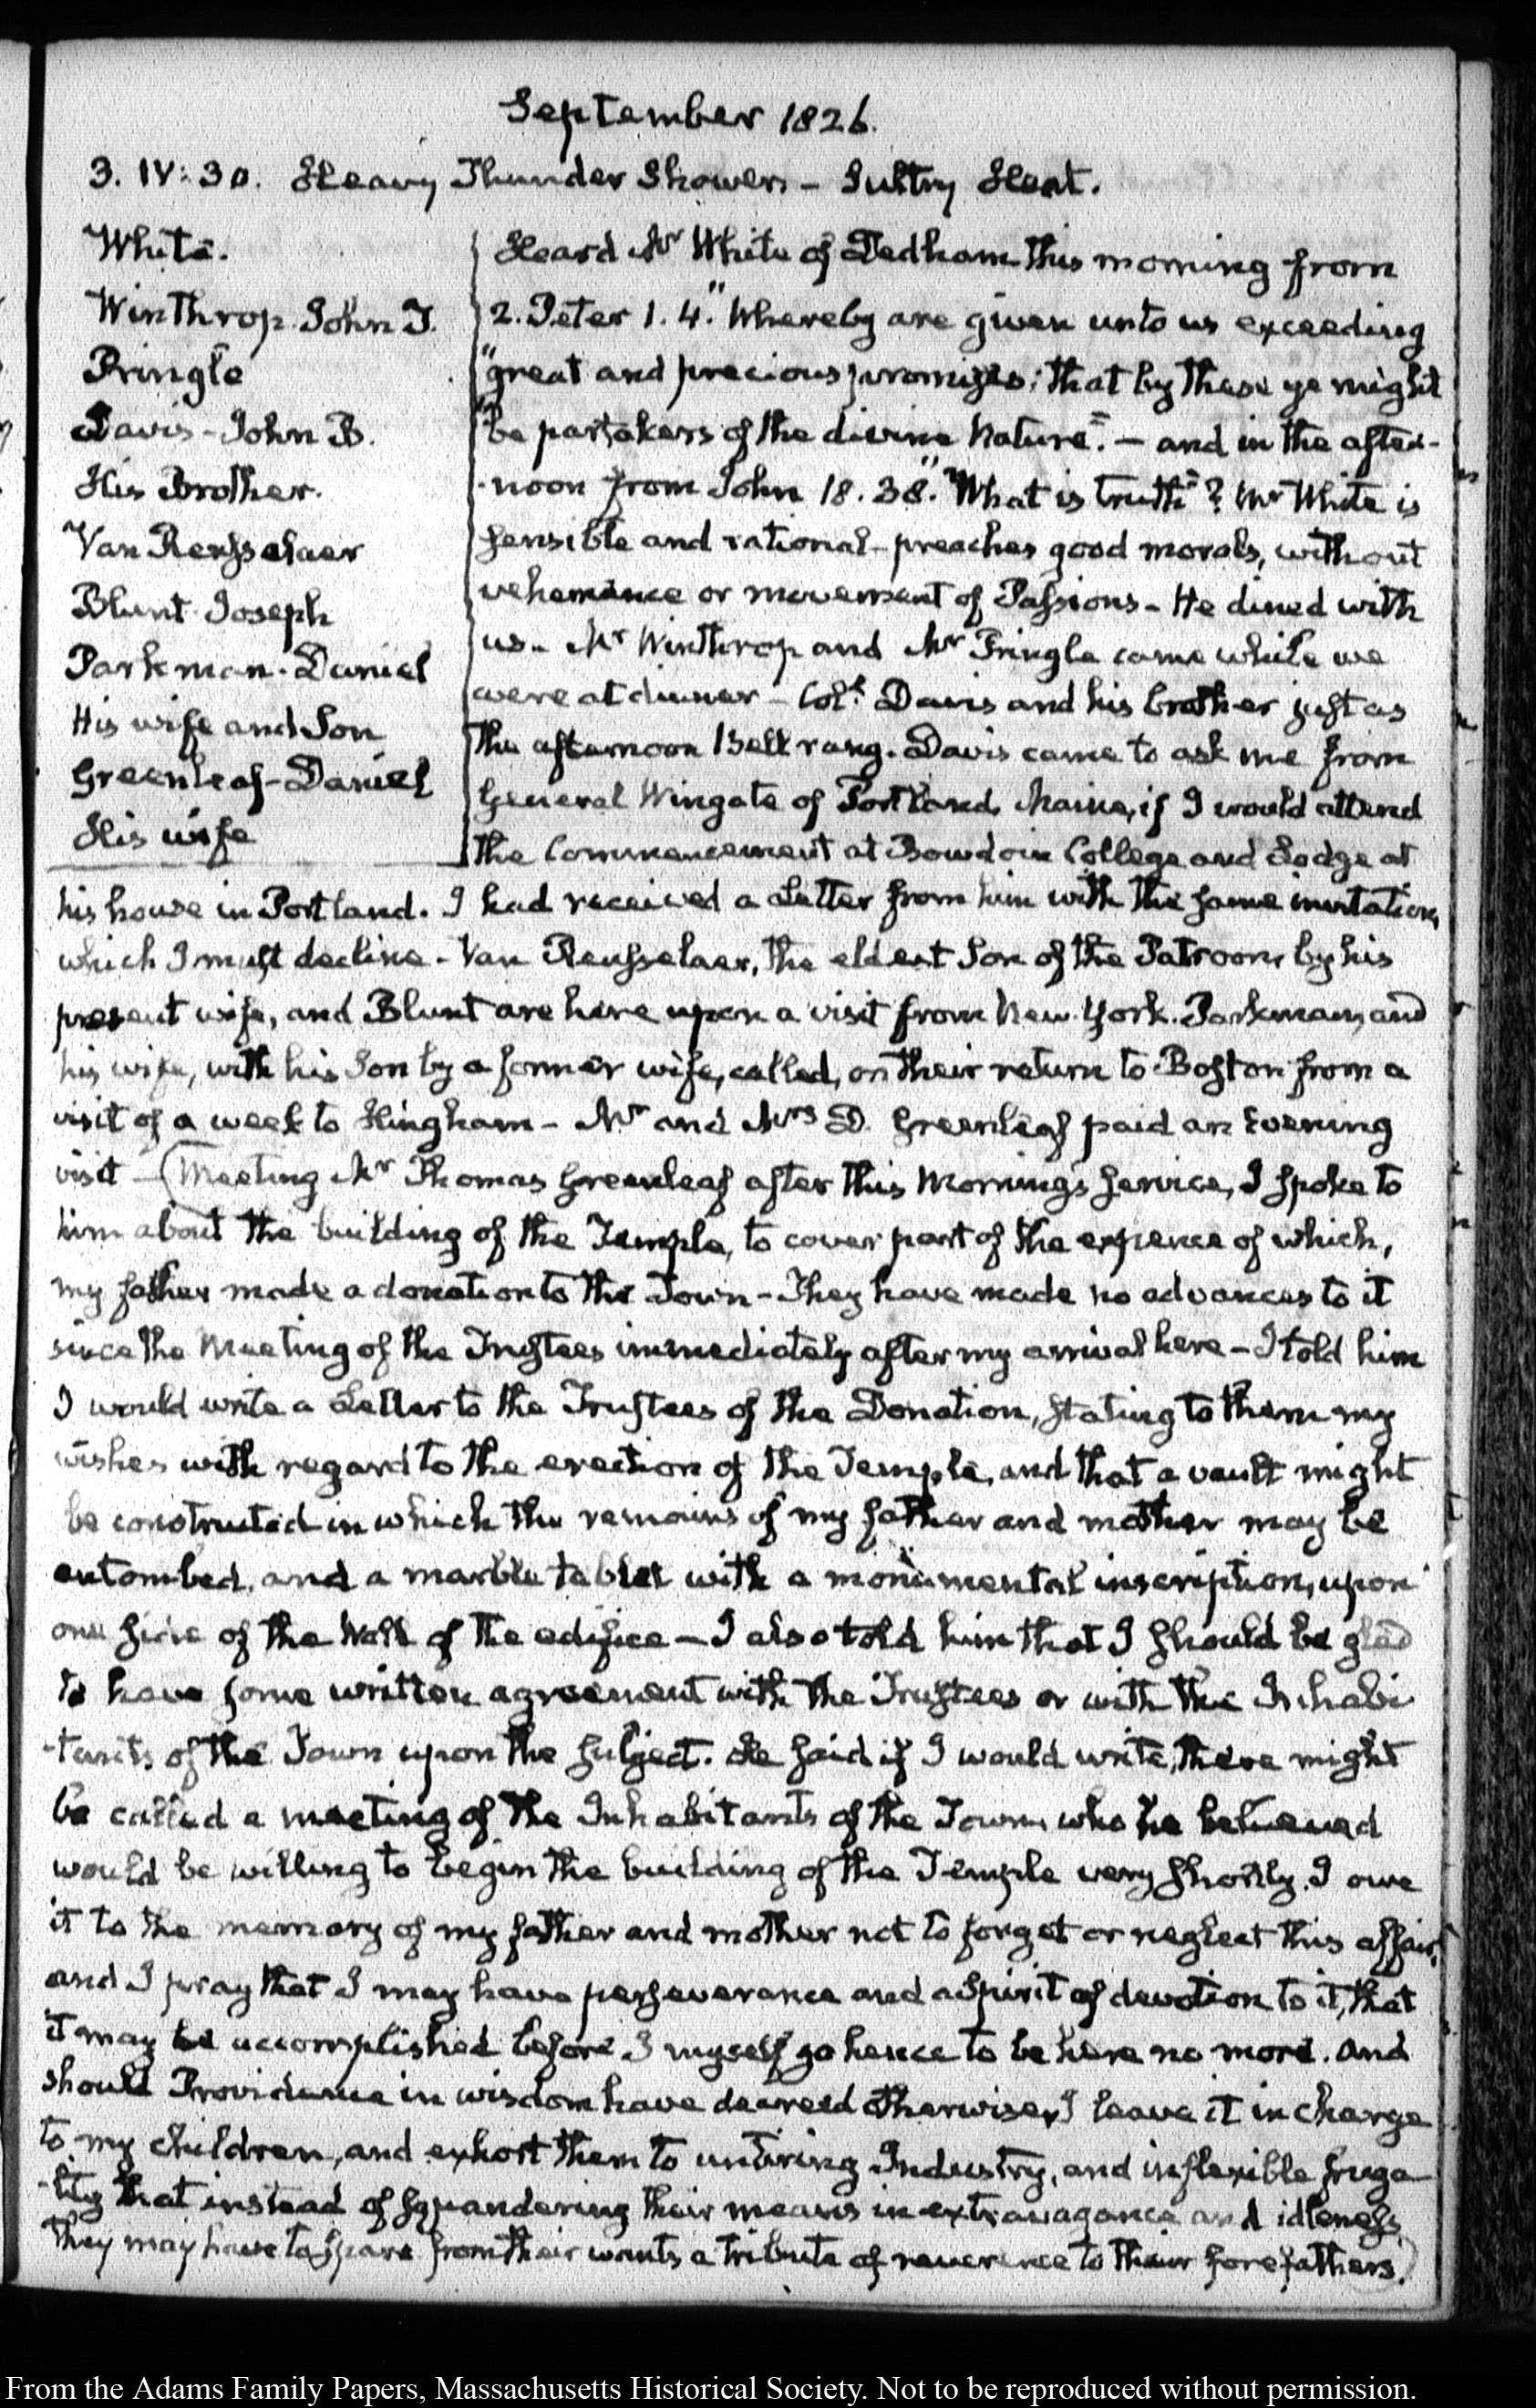 September 1826.
3. IV: 30. Heavy Thunder Showers - Sultry Heat.
White.
Winthrop. John T.
Pringle
Davis - John B.
His Brother.
Van Rensselaer
Blunt. Joseph
Parkman. Daniel
His wife and Son
Greenleaf - Daniel
His wife
Heard Mr White of Dedham this morning from
2. Peter 1. 4. "Whereby are given unto us exceeding
"great and precious promises; that by these ye might
"be partakers of the divine Nature". - and in the after-
-noon from John 18. 38. "What is truth"? Mr White is
sensible and rational - preaches good morals, without
vehemence or movement of Passions - He dined with
us - Mr Winthrop and Mr Pringle came while we
were at dinner - Coll. Davis and his brother just as
the afternoon Bell rang. Davis came to ask me from
General Wingate of Portland, Maine, if I would attend
the Commencement at Bowdoin College and Lodge at
his house in Portland. I had received a Letter from him with the same invitation,
which I must decline - Van Rensselaer, the eldest Son of the Patroon by his
present wife, and Blunt are here upon a visit from New-York. Parkman, and
his wife, with his Son by a former wife, called, on their return to Boston from a
visit of a week to Hingham - Mr and Mrs D. Greenleaf paid an Evening
visit - (Meeting Mr Thomas Greenleaf after this Morning's service, I spoke to
him about the building of the Temple, to cover part of the expence of which,
my father made a donation to the Town - They have made no advances to it
since the Meeting of the Trustees immediately after my arrival here - I told him
I would write a Letter to the Trustees of the Donation, stating to them my
wishes with regard to the erection of the Temple, and that a vault might
be constructed in which the remains of my father and mother may be
entombed, and a marble tablet with a monumental inscription, upon
one side of the Wall of the edifice - I also told him that I should be glad
to have some written agreement with the Trustees or with the Inhabi
-tants of the Town upon the subject. He said if I would write, there might
be called a meeting of the Inhabitants of the Town, who he believed
would be willing to begin the building of the Temple very shortly. I owe
it to the memory of my father and mother not to forget or neglect this affair,
and I pray that I may have perseverance and a Spirit of devotion to it, that
it may be accomplished before I myself go hence to be here no more. And
should Providence in wisdom have decreed otherwise, I leave it in charge
to my children, and exhort them to untiring Industry, and inflexible fruga
-lity that instead of squandering their means in extravagance and idleness
they may have to spare from their wants a tribute of reverence to their forefathers.)
From the Adams Family Papers, Massachusetts Historical Society. Not to be reproduced without permission.